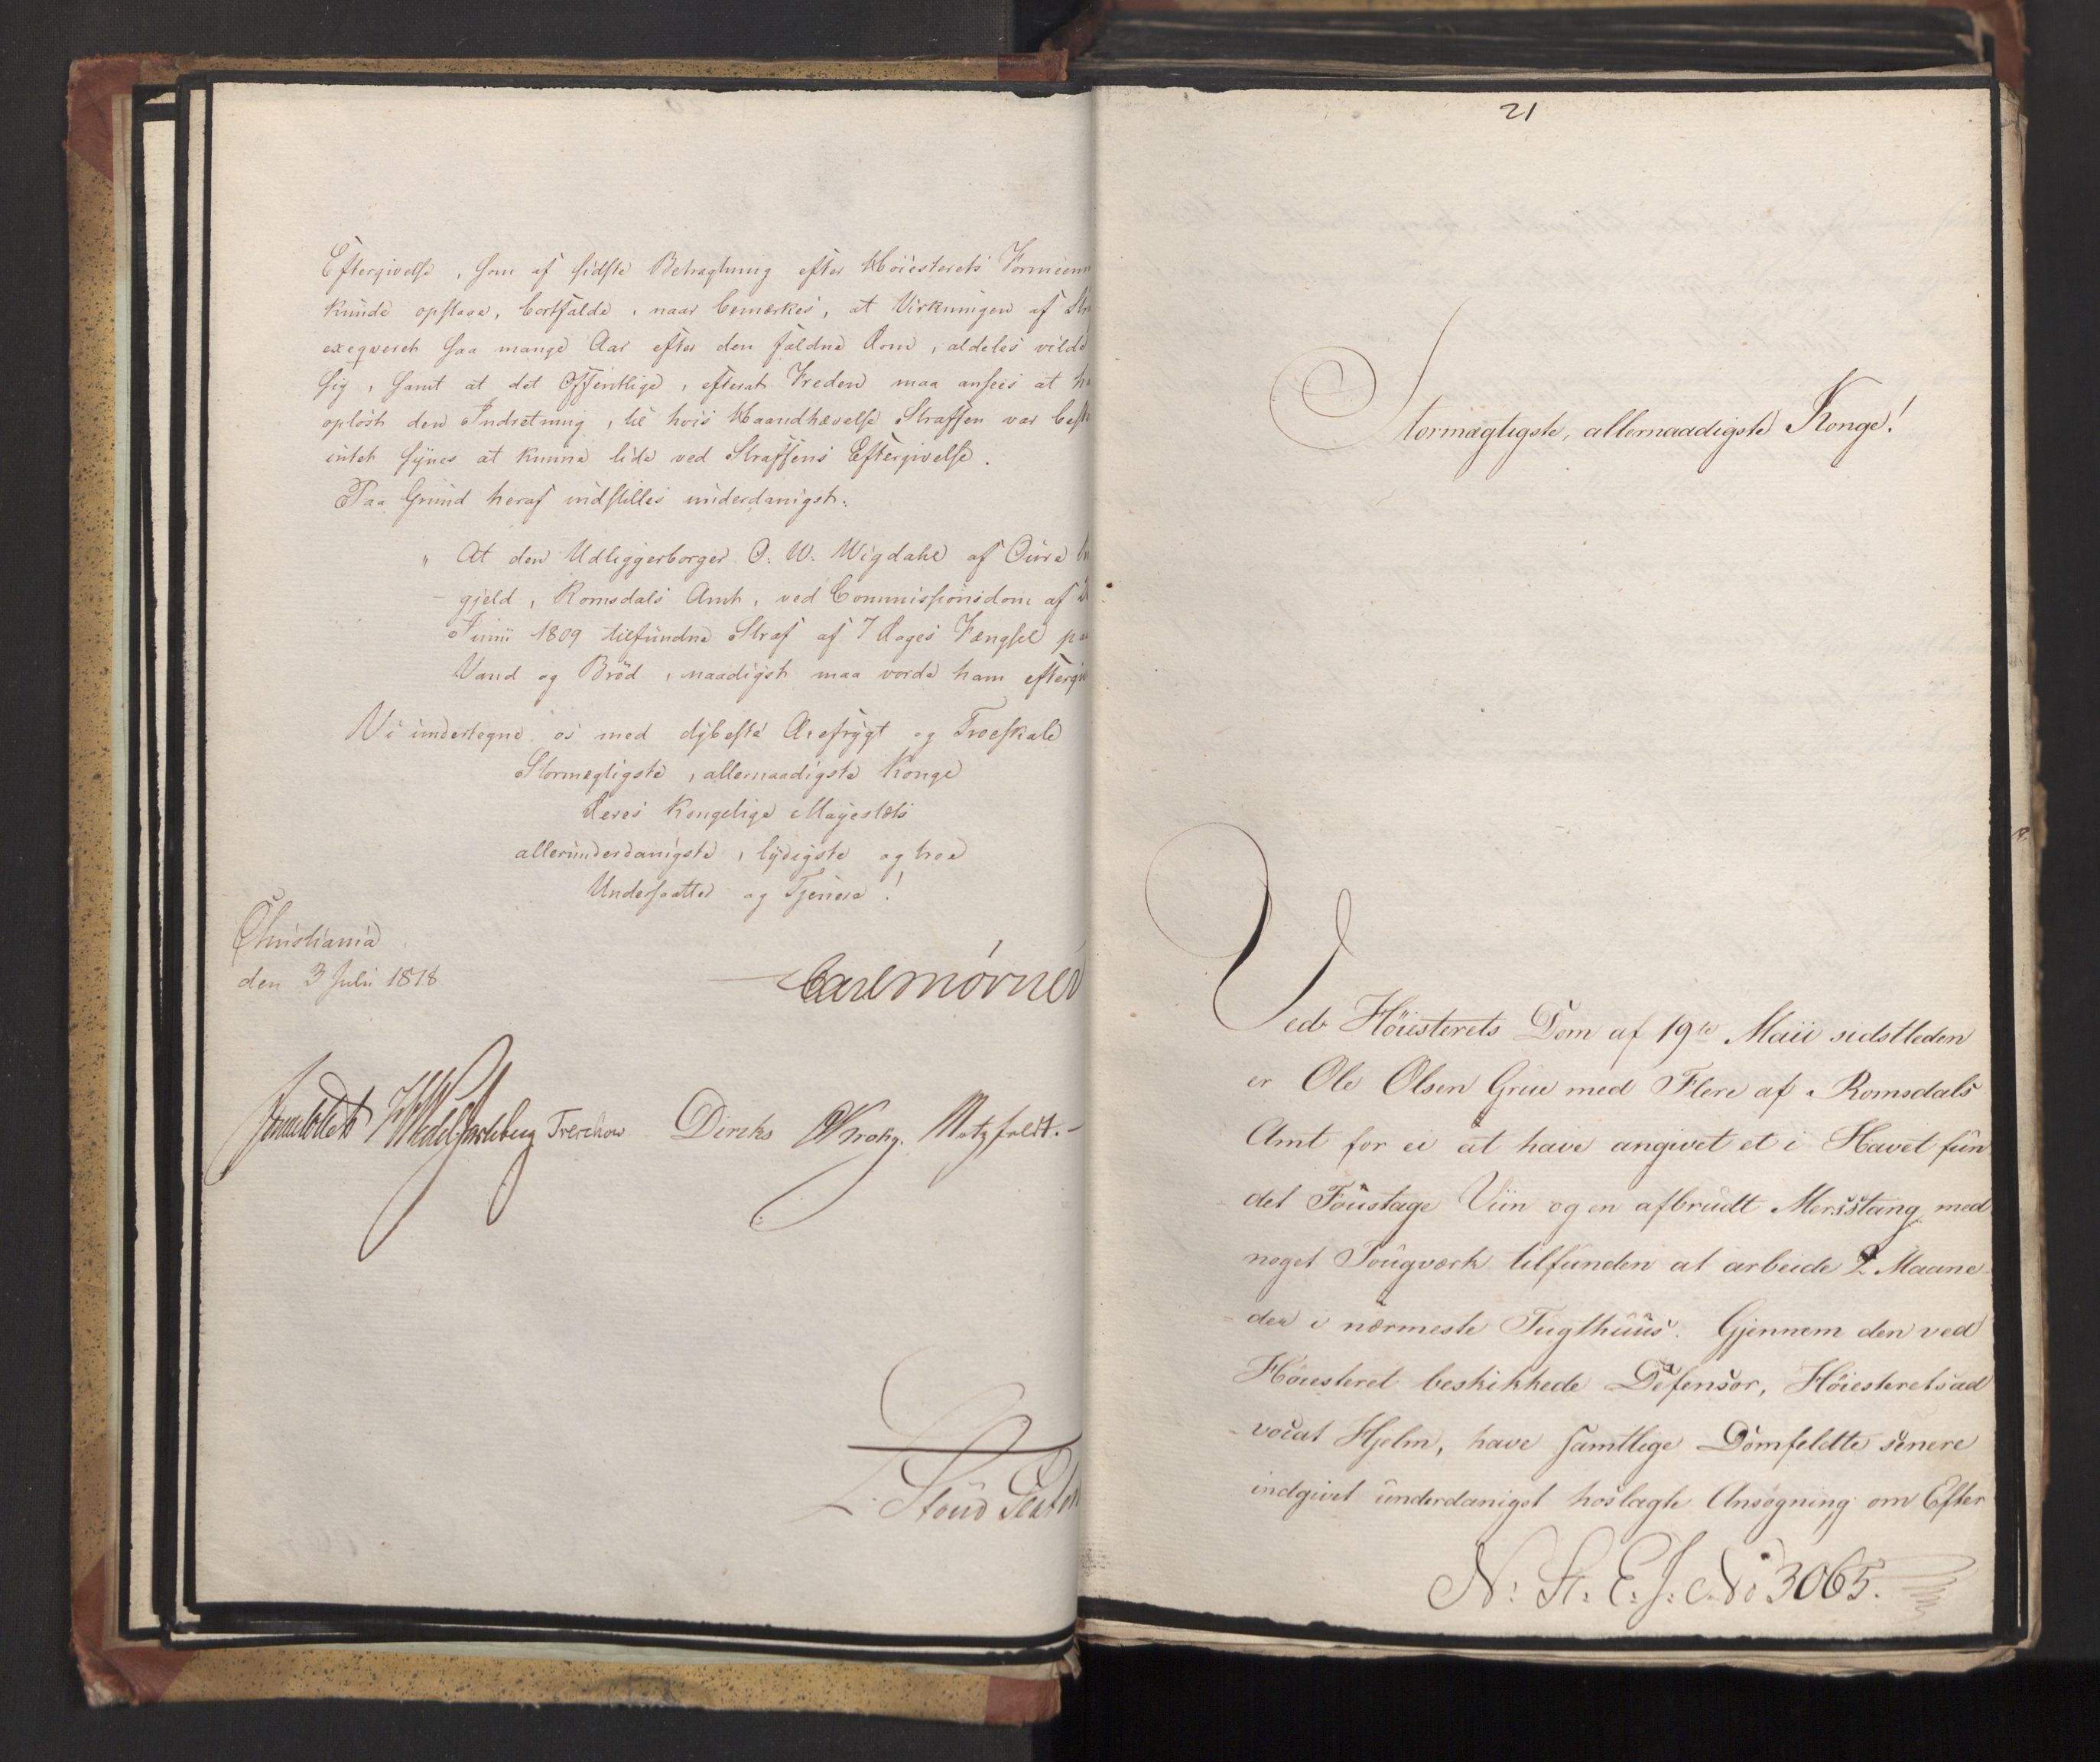 Eftergivelse, som af sidste Betragtning efter Høiesterets Formeen
kunde opstaae, bortfalde, naar bemærkes, at Virkningen af
exeqveret saa mange Aar efter den faldne Dom, aldeles vilde
sig, samt at det Offentlige, efterat Freden maa ansees at
opløst den Indretning, til hvis Haandhævelse Straffen var
intet synes at kunne lide ved Straffens Eftergivelse.
Paa Grund heraf indstilles underdanigst:
" At den Udliggerborger O. W. Wigdahl af Oure
gjeld, Romsdals Amt, ved Commissionsdom af
Junii 1809 tilfundne Straf af 7 Dages Fængsel paa
Vand og Brød, naadigst maa vorde ham eftergi
Vi undertegne os med dybeste Ærefrygt og Troeskab
Stormægtigste, allernaadigste Konge
Deres Kongelige Mayestæts
allerunderdanigste, lydigste og troe
Undersaatter og Tjenere!
Christiania
den 3 Julii 1818
Carl Mørner
Sommerfeldt HWedel Jarlsberg Treschow Diriks CKrohg. Motzfeldt.
L. Stoud Platou
21
Stormægtigste, allernaadigste Konge!
Ved Høiesterets Dom af 19de Maii sidstleden
er Ole Olsen Grue med Flere af Romsdals
Amt for ei at have angivet et i Havet fun
det Foustage Viin og en afbrudt Mersstang med
noget Tougværk tilfunden at arbeide 2 Maane
der i nærmeste Tugthuus. Gjennem den ved
Høiesteret beskikkede Defensor, Høiesteretsad
vocat Hjelm, have samtlige Domfeldte senere
indgivet underdanigst hoslagte Ansøgning om Efter
N: St. E. J: No 3065.